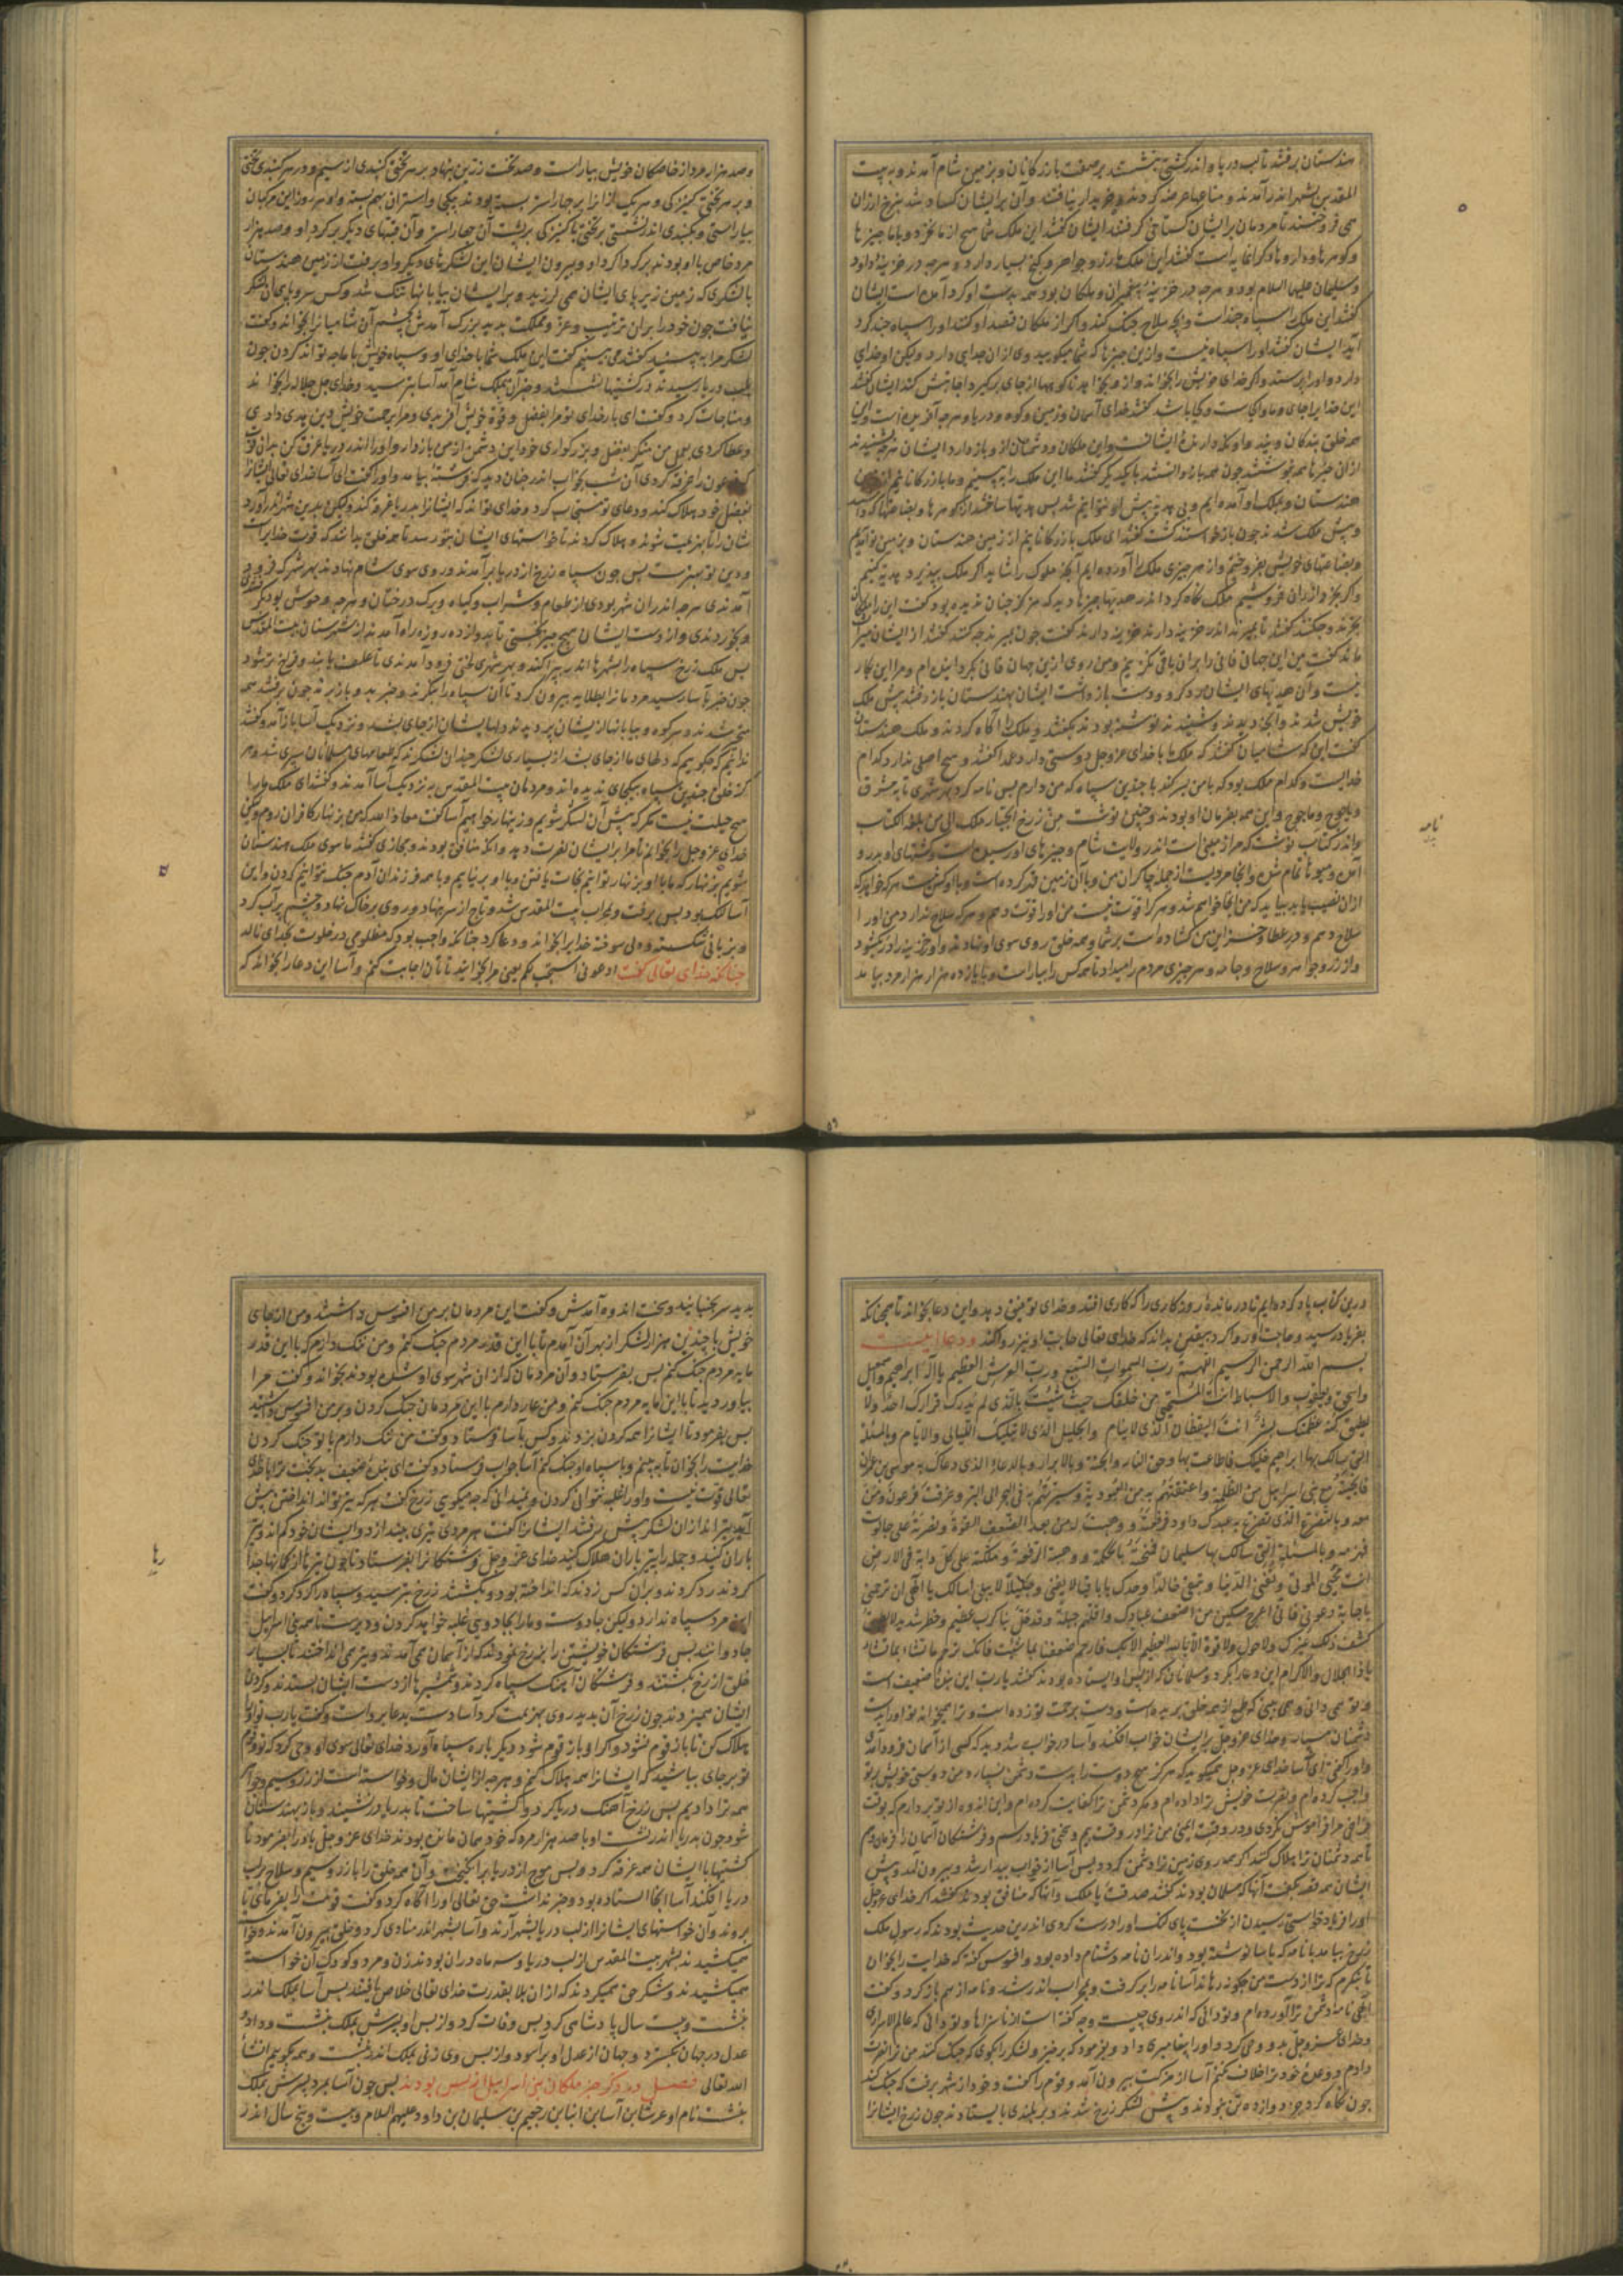 هندستان برفتند تا لب دریا و اندر کشتی بنشستند بر صفت بازرگانان و بزمین شام آمدند و به بیت
المقدس بشهر اندر آمدند و متاعها عرضه کردند و خریدار نیافتند و آن بر ایشان کساد شد بنرخ ارزان
می فروختند تا مردمان بر ایشان گستاخی گرفتند ایشان گفتند این ملک شما هیچ از ما نخرد و با ما چیزها
و سلیمان علیهم السلام بود و هرچه در خزینه پیغمبران و ملکان بود همه بدست او کرد آمده است ایشان
گفتند این ملک را سپاه چند است و بچه سلاح جنگ کند و اگر از ملکان قصد او کنند او را سپاه چند گرد
آید ایشان گفتند او را سپاه نیست و ازین چیزها که شما میگویید وی از ان جدای دارد ولیکن او خدای
دارد و او را پرستد و اگر خدای خویش را بخواند و ازو بخواهد تا کوهها از جای برگیرد اجابتش کند ایشان گفتند
این خدا را جای و ماوای کست و کجا باشد گفتند خدای آسمان و زمین و کوه و دریا و هرچه آفریده است و این
همه خلق بندگان ویند و او نگه دارنده ایشانست و این ملکان و دشمنان از و باز دارد ایشان هرچه شنیدند
از ان خبرها همه بنوشتند چون همه بازدانستند با یکدیگر گفتند ما این ملک را به بینیم و ما بازرگانانیم از
هندستان و بملک او آمده ایم و بی هدیه پیش او نتوانیم شد پس هدیتها ساختند از گوهرها و بضاعتها که داشتند
و پیش ملک شدند چون بازخواستند گشت گفتند ای ملک بازرگانانیم از زمین هندستان و بزمین تو آمدیم
و بضاعتهای خویش بفروختیم و از هر چیزی ملک را آورده ایم آنچه ملوک را شاید اگر ملک بپذیرد هدیه کنیم
ماند گفت من این جهان فانی را بران باقی نگزیدم و من روی ازین جهان فانی بگردانیده ام و مرا این کار
نیست و آن هدیهای ایشان رد کرد و دست بازداشت ایشان بهندستان باز رفتند پیش ملک
خویش شدند و آنچ دیدند و شنیدند نوشته بودند بگفتند و ملک را آگاه کردند و ملک هندستان
گفت این که شامیان گفتند که ملک ما با خدای عز و جل دوستی دارد بدانکه گفتند و هیچ اصلی ندارد کدام
خدایست و کدام ملک بود که با من بر کند با چندین سپاه که من دارم پس نامه کرد بهر شهری تا به مشرق
و یاجوج و ماجوج و این همه بفرمان او بودند و چنین نوشت مِن زرخ الجبار ملک الی من بلغه الکتاب
و اندر کتاب نوشت که مرا زمینی است اندر ولایت شام و چیزهای او رسیده است و کشتهای او بدرو
سلاح دهم و در عطا و خزاین من کشاده است بر شما و همه خلق روی سوی او نهادند و او خزینه را در بگشود
و از زر و جواهر و سلاح و جامه و هر چیزی مردم را میداد تا همه کس را بیاراست و با یازده هزار هزار مرد بیامد
نامه
و صد هزار مرد از خاصگان خویش بیاراست و صد تخت زرین بنهاد بر هر تختی گنبدی از سیم و در هر گنبدی تختی
و بر هر تختی کنیزکی و هر یک از انرا بر چهار استر بسته بودند بیکی و استران بهم بسته و او هر روز این مرکبان
بیاراستی و بگنبدی اندر نشستی بر تختی با کنیزکی بر پشت آن چهار استر و آن قبتهای دیگر بر گرد او و صد هزار
مرد خاص با او بودند برگرداگرد او و بیرون ایشان این لشکرهای دیگر و او برفت از زمین هندستان
با لشکری که زمین زیر پای ایشان همی لرزید و بر ایشان بیابانها تنگ شد و کس سر و پای آن لشکر
نیافت چون خود را بران ترتیب و عز و مملکت بدید بزرگ آمدش بچشم آن شامیان را بخواند و گفت
لشکر مرا به بینید گفتند می بینیم گفت این ملک شما با خدای او و سپاه خویش با ما چه تواند کردن چون
بلب دریا رسیدند در کشتیها نشستند و خبر آن بملک شام آمد آسا بترسید و خدای جل جلاله را بخواند
و مناجات کرد و گفت ای بار خدای تو مرا بفضل و قوة خویش آفریدی و مرا برحمت خویش دین هدی دادی
و عطا کردی بعمل من منگر بفضل و بزرگواری خود این دشمن از من باز دار و او را اندر دریا غرق کن بدان قوة
که فرعون را غرقه کردی آن شب بخواب اندر چنان دید که فرشته بیامد و او را گفت ای آسا خدای تعالی ایشان را
بفضل خود هلاک کند و دعای تو مستجاب کرد و خدای تواند که ایشان را بدریا غرقه کند ولیکن بدین شهر اندر آورد
شان را تا بهزیمت شوند و هلاک گردند تا خواستهای ایشان بتو رسد تا همه خلق بدانند که قوت خدایراست
و دین تو بهترست پس چون سپاه زرخ از دریا برآمدند و روی سوی شام نهادند بهر شهر که فرود
آمدندی هرچه اندران شهر بودی از طعام و شراب و گیاه و برگ درختان و هرچه وحوش بود بکشتندی
و بخوردندی و از دست ایشان هیچ چیز نجستی تا بدوازده روزه راه آمدند از شهرستان بیت المقدس
پس ملک زرخ سپاه را بشهرها اندر پراکند و بهر شهری لختی فرود آمدندی تا علف یابند و فراخ تر شود
چون خبر بآسا رسید مردمان را بطلایه بیرون کرد تا آن سپاه را بنگرند و خبر بدو باز برند چون برفتند همه
متحیر شدند و هر کوه و بیابانها از ایشان پر دیدند دلها ایشان از جای بشد و نزدیک آسا باز آمدند و گفتند
ندانیم که چگوییم که دلهای ما از جای بشد از بسیاری لشکر چندان لشکرند که طعامهای مسلمانان سپری شد و هر
گز خلق چندین سپاه بیکجای ندیده اند و مردمان بیت المقدس به نزدیک آسا آمدند و گفتند ای ملک ما را
هیچ حیلت نیست مگر که پیش آن لشکر شویم و زینهار خواهیم آسا گفت معاذ الله که من بزنهار کافران روم ولیکن
خدای عز و جل را بخوانم تا ما را بر ایشان نصرت دهد و آنکه منافق بودند و مجازی گفتند ما سوی ملک هندستان
شویم بزنهار که ما با او بزنهار توانیم نجات یافتن و با او بر نیاییم و با همه فرزندان آدم جنگ نتوانیم کردن و این
آسا ملک بود پس برفت و بمحراب بیت المقدس شد و تاج از سر بنهاد و روی بر خاک نهاد و چشم پر آب کرد
و بزبانی شکسته و دلی سوخته خدایرا بخواند و دعا کرد چنانکه واجب بود که مظلومی در خلوت بخدای ناله
چنانکه خدای تعالی گفت ادعونی استجب لکم یعنی مرا بخوانید تا تان اجابت کنم و آسا این دعا را بخواند که
درین کتاب یاد کرده ایم تا درمانده روزگاری را که کاری افتد و خدای توفیق دهد و این دعا بخواند تا همچنانکه
بفریاد رسید و حاجت او روا کرد بیقین بداند که خدای تعالی حاجت او نیز روا کند و دعا اینست
بسم الله الرحمن الرحیم اللهم رب السموات السبع و رب العرش العظیم یا اله ابراهیم و اسمعیل
و اسحق و یعقوب و الاسباط انت المستخفی من خلقک حیث شئت یا الذی لم یدرک قرارک احد ولا
یطیق کنه عظمتک بشر انت الیقظان الذی لا ینام و الجلیل الذی لا تبلیک اللیالی و الایام و بالمسئلة
التی سالک بها ابراهیم خلیلک فاطفأت بها وجه النار و الحقته بالابرار و بالدعاء الذی دعاک به موسی بن عمران
معه و بالتضرع الذی تضرع به عبدک داود فرفعته و وهبت له من بعد الضعف القوة و نصرته علی جالوت
فهزمه و بالمسئلة التی سالک بها سلیمان فمنحته بالحکمة و وهبت له الرفعة و ملکته علی کل دابة فی الارض
انت محیی الموتی و مفنی الدنیا و تبقی خالدا وحدک یا باقیا لا یفنی و جدیدا لا یبلی اسالک یا الهی ان ترحمنی
باجابة دعوتی فانی اعرج مسکین من اضعف عبادک و اقلهم حیلة و قد حل بنا کرب عظیم و خطر شدید لا یطیق
کشف ذلک غیرک ولا حول ولا قوة الا بالله العظیم الا بک فارحم ضعفنا بما شئت فانک ترحم ما تشاء بما تشاء
یا ذا الجلال و الاکرام این دعا بکرد و مسلمانان که از پس او ایستاده بودند گفتند یا رب این بنده ضعیف است
دشمنان مسپار و خدای عز و جل بر ایشان خواب افکند و آسا در خواب شد و دید که کسی از آسمان فرود آمد
و او را گفت ای آسا خدای عز و جل میگوید که هرگز هیچ دوست را بدست دشمن نسپارد و من دوستی خویش بر تو
واجب کرده ام و نصرت خویش ترا داده ام و مکر دشمن ترا کفایت کرده ام و این اندوه از تو بردارم که بوقت
فراخی مرا فراموش نکردی و در وقت ایمنی من ترا در وقت بیم و سختی فریاد رسم و فرشتگان آسمان را فرمان دهم
تا همه دشمنان ترا هلاک کنند اگر همه روی زمین ترا دشمن گردد پس آسا از خواب بیدار شد و بیرون آمد و پیش
ایشان همه قصه بگفت آنها که مسلمان بودند گفتند صدقت یا ملک و آنها که منافق بودند گفتند اگر خدای عز و جل
او را فریاد خواستی رسیدن از نخست پای لنگ او را درست کردی اندرین حدیث بودند که رسول ملک
زرخ بیامد با نامه که بآسا نوشته بود و اندران نامه دشنام داده بود و افسوس کرده که خدایت را بخوان
تا بنگرم که ترا از دست من چگونه رهاند آسا نامه را برگرفت و بمحراب اندر شد و نامه از هم باز کرد و گفت
الهی نامه دشمن ترا آورده ام و تو دانی که اندر وی چیست و چه گفته است از ناسزاها و تو دانی که عالم الاسراری
و خدای عز و جل بدو وحی کرد و او را پیغامبری داد و بفرمود که برخیز و لشکر را بگوی که جنگ کنند من ترا نصرت
دادم و وعدۀ خود ترا خلاف نکنم آسا از حرکت بیرون آمد و قوم را گفت و خود از شهر برفت که جنگ کند
چون نگاه کرد جز دوازده تن نبودند و پیش لشکر زرخ شدند و بر بلندی بایستادند چون زرخ ایشان را
بدید سر بجنبانید و سخت اندوه آمدش و گفت این مردمان بر من افسوس داشتند و من از جای
خویش با چندین هزار لشکر از بهر آن آمدم تا با این قدر مردم جنگ کنم و من ننگ دارم که با این قدر
مایه مردم جنگ کنم پس بفرستاد و آن مردمان که از ان شهر سوی او شده بودند بخواند و گفت مرا
بیاوردید تا با این مایه مردم جنگ کنم و من عار دارم با این مردمان جنگ کردن و بر من افسوس داشتید
پس بفرمود تا ایشان را همه گردن بزدند و کس بآسا فرستاد و گفت من ننگ دارم با تو جنگ کردن
خدایت را بخوان تا به بینم و با سپاه او جنگ کنم آسا جواب فرستاد و گفت ای بنده ضعیف بدبخت ترا با خدای
تعالی قوت نیست و او را غلبه نتوانی کردن و نمیدانی که چه میگوی زرخ گفت هر که تیر تواند انداختن پیش
آید تیراندازان لشکر پیش رفتند ایشان را گفت هر مردی تیری بیندازد و ایشان خود کم اند و تیر
باران کنید و جمله را بتیر باران هلاک کنید خدای عز و جل فرشتگان را بفرستاد تا چون تیرها از کمانها جدا
کردند رد کردند و بران کس زدند که انداخته بود و بکشتند زرخ بترسید و سپاه را گرد کرد و گفت
این مرد سپاه ندارد ولیکن جادوست و ما را بجادوی غلبه خواهد کردن و دیرست تا همه بنی اسرائیل
جادوانند پس فرشتگان خویشتن را بزرخ نمودند که از آسمان می آمدند و تیر می انداختند تا بسیار
خلق از زرخ بکشتند و فرشتگان آهنگ سپاه کردند و شمشیرها از دست ایشان بستدند و گردن
ایشان همیزدند چون زرخ آن بدید روی بهزیمت کرد آسا دست بدعا برداشت و گفت یا رب تو او را
هلاک کن تا باز قوم نشود و اگر او باز قوم شود دیگر باره سپاه آورد خدای تعالی سوی او وحی کرد که تو و قوم
تو بر جای بباشید که ایشان را همه هلاک کنم و هرچه از ایشان مال و خواسته است از زر و سیم و جواهر
همه ترا دادیم پس زرخ آهنگ دریا کرد و کشتیها ساخت تا بدریا در نشیند و باز بهندستان
شود چون بدریا اندر نشست او با صد هزار مرد که خود همان مانده بودند خدای عز و جل باد را بفرمود تا
کشتیها با ایشان همه غرقه کرد و پس موج از دریا برانگیخت و آن همه خلق را با زر و سیم و سلاح بر لب
دریا افکند آسا آنجا ایستاده بود و خبر نداشت حق تعالی او را آگاه کرد و گفت قومت را بفرمای تا
بروند و آن خواستهای ایشان را از لب دریا بشهر آرند و آسا بشهر اندر منادی کرد و خلق بیرون آمدند و خواسته
میکشیدند بشهر بیت المقدس از لب دریا و سه ماه دران بودند زن و مرد و کودک آن خواسته
همیکشیدند و شکر حق همیکردند که از ان بلا بقدرت خدای تعالی خلاص یافتند پس آسا بملک اندر
بنشست و بیست سال پادشاهی کرد پس وفات کرد و از پس او پسرش بملک بنشست و داد و
عدل در جهان بگسترد و جهان از عدل او برآسود و از پس وی زنی بملک اندر نشست و همه بگوییم انشا
الله تعالی فصل در ذکر خبر ملکان بنی اسرائیل از پس بودند پس چون آسا بمرد پسرش بملک
بنشست نام او عرشا بن آسا بن ابیا بن رجعیم بن سلیمان بن داود علیهم السلام و بیست و پنج سال اندر